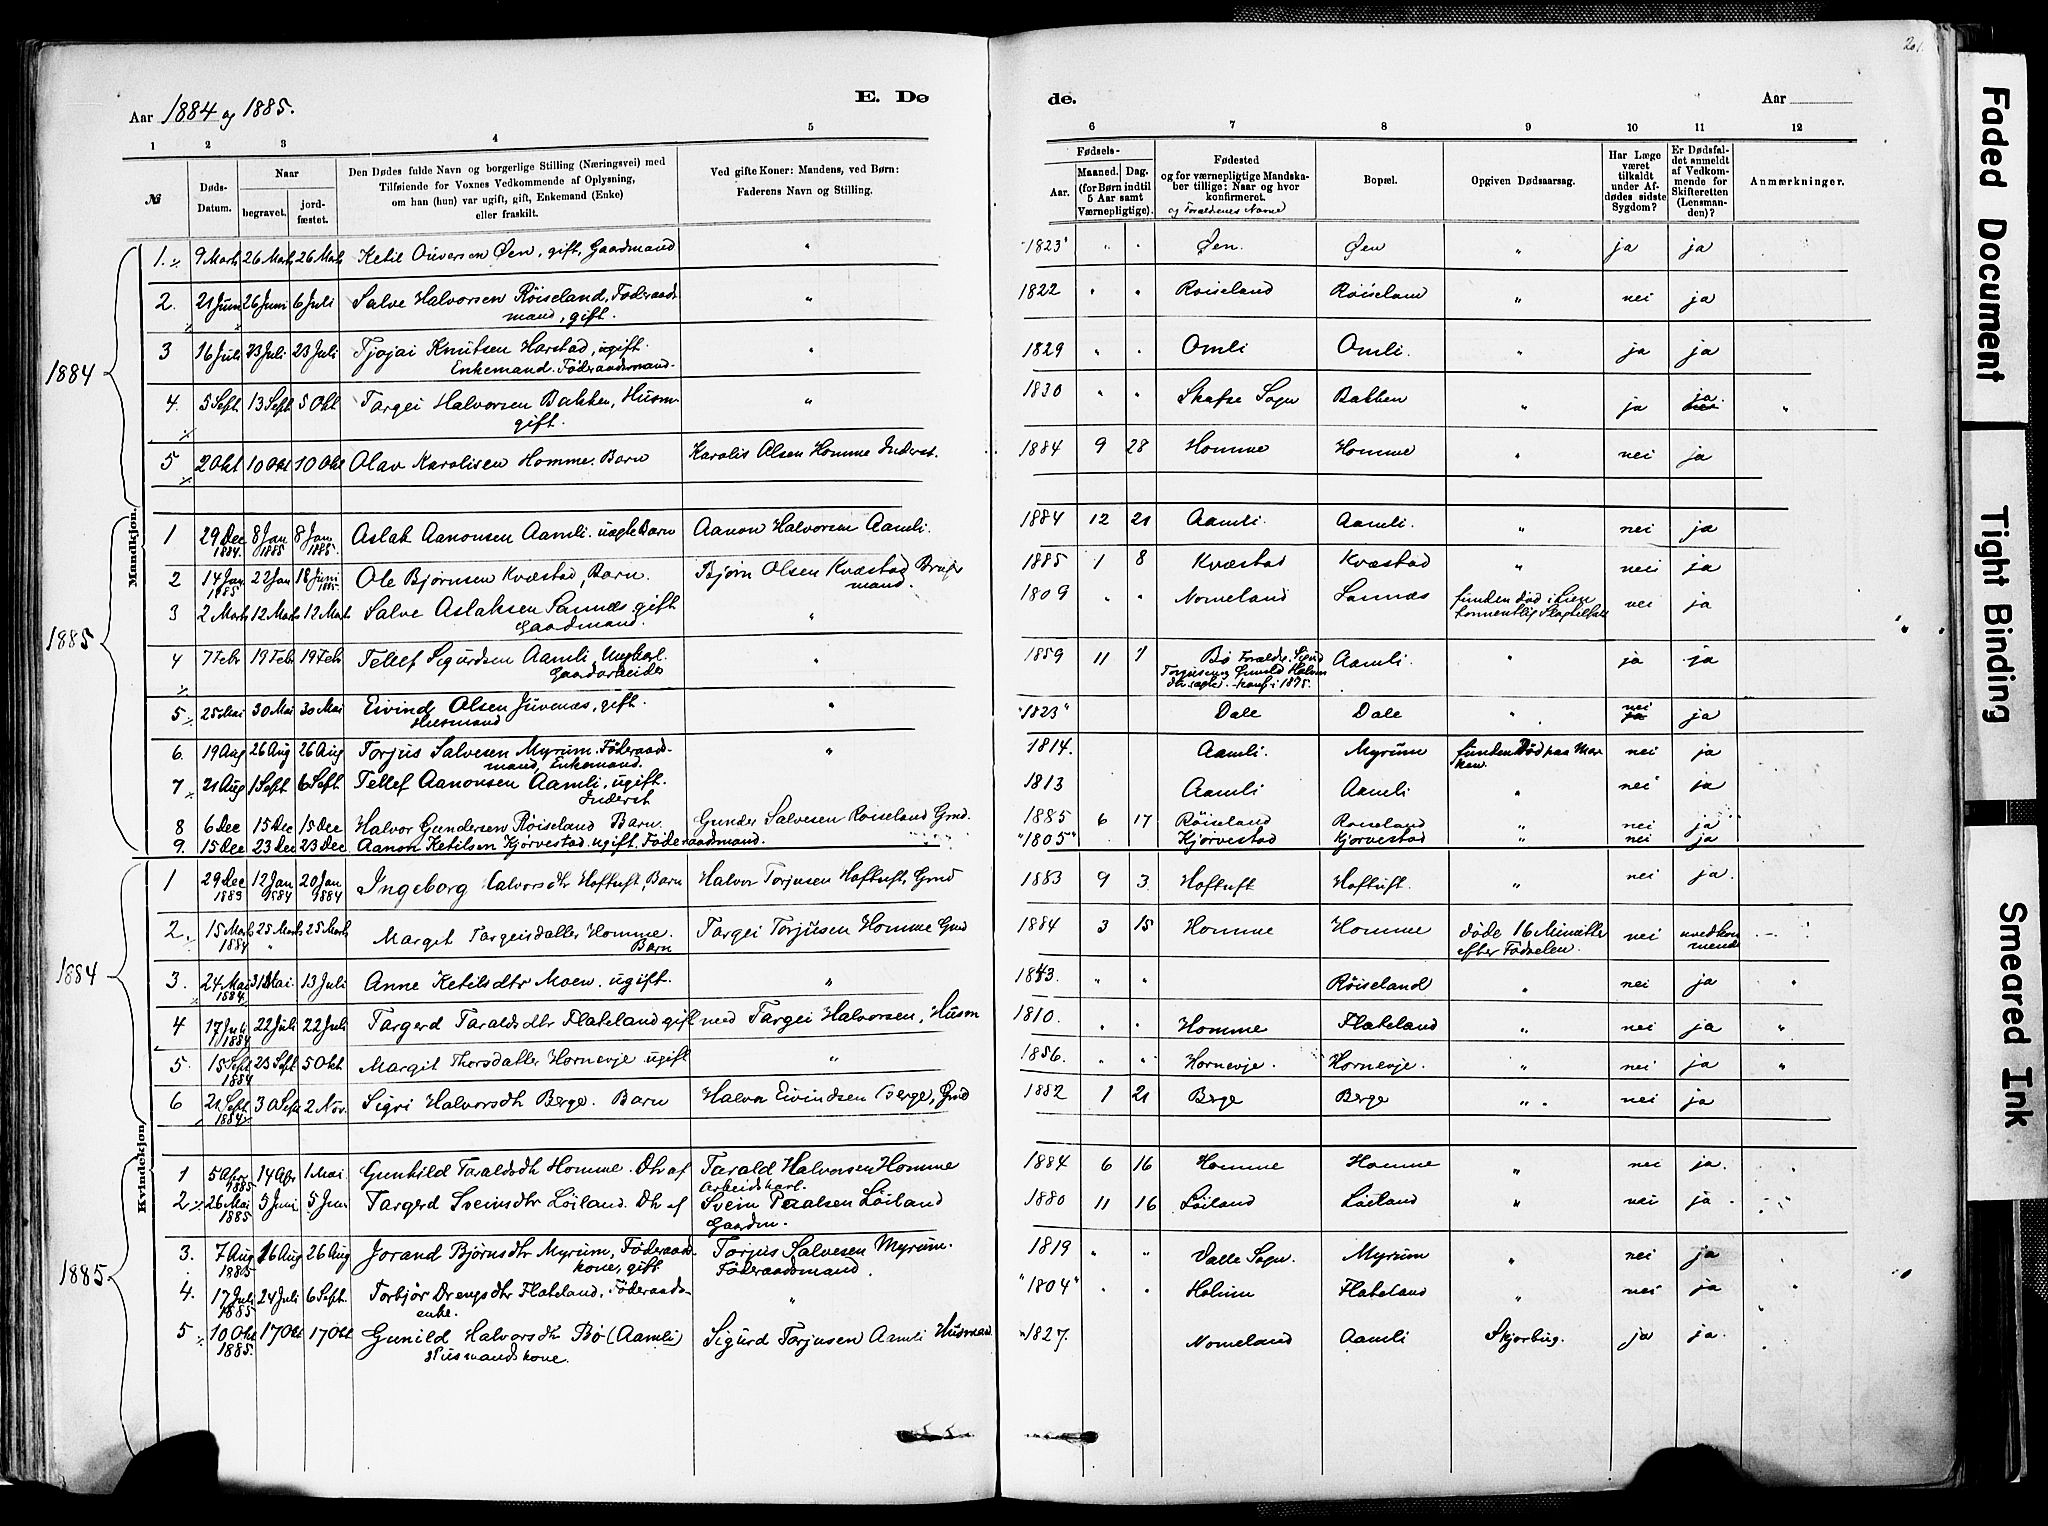 201.
Aar 1884 og 1885.
E. Dø
de.
Aar
1 2 3 4 5 6 7 8 9 10 11 12
№
Døds-Datum.
Naar
begravet.
jord-fæstet.
Den Dødes fulde Navn og borgerlige Stilling (Næringsvei) med
Tilføiende for Voxnes Vedkommende af Oplysning,
om han (hun) var ugift, gift, Enkemand (Enke)
eller fraskilt.
Ved gifte Koner: Mandens, ved Børn:
Faderens Navn og Stilling.
Fødsels-
Aar.
Maaned. Dag.
(for Børn indtil
5 Aar samt
Værnepligtige).
Fødested
og for værnepligtige Mandska-
ber tillige: Naar og hvor
konfirmeret.
og Forældrenes Navne
Bopæl.
Opgiven Dødsaarsag.
Har Læge
været
tilkaldt
under Af-
dødes sidste
Sygdom?
Er Dødsfal-
det anmeldt
af Vedkom-
mende for
Skifteretten
(Lensman-
den)?
Anmærkninger.
Mandkjøn.
1884
1. 9 Marts 26 Marts 26 Marts Ketil Øen, gift, Gaardmand " "1823" " " Øen. Øen " ja ja
2. 21 Juni 26 Juni 6 Juli Salve Halvorsen Røiseland, Føderaads
mand, gift. " 1822 " " Røiseland Røiseland " nei ja
3 16 Juli 23 Juli 23 Juli Knutsen Harstad, ugift.
Enkemand. Føderaadsmand. " 1829 " " Omli Omli. " ja ja
4. 5 Sept 13 Sept 5 Okt Targei Halvorsen Bakken, Husm
gift. " 1830 " " Skafse Sogn Bakken " ja ja "
5 2 Okt 10 Okt 10 Okt Olav Karolisen Homme. Barn Karolis Olsen Homme Inderst. 1884 9 28 Homme Homme " nei ja
1885
1 29 Dec 1884. 8 Jan 1885 8 Jan 1885. Aslak Aanonsen Aamli. uægte Barn Aanon Halvorsen Aamli. 1884 12 21 Aamli. Aamli. " nei ja
2 14 Jan 1885 22 Jan 18 Juni 1885. Ole Bjørnsen Kvæstad, Barn. Bjørn Olsen Kvæstad Bruger
mand. 1885 1 8 Kvæstad Kvæstad " nei ja
3 2 Marts 12 Marts 12 Marts Salve Aslaksen Sannæs, gift
Gaardmand. " 1809 " " Nomeland Sannæs funden død i Lien
nei ja
4 7 Febr 19 Febr 19 Febr Tellef Sigurdsen Aamli, Ungkarl.
Gaardarbeider " 1859 11 7 Bø Forældre. Sigurd
Torjusen og Gunild Halvors
dtr. konf. i 1875. Aamli. " ja ja
5 25 Mai 30 Mai 30 Mai Eivind Olsen Juvenæs, gift.
Husmand " "1823" Dale Dale " nei ja
6. 19 Aug 26 Aug 26 Aug Torjus Salvesen Myrum. Føderaad-
mand, Enkemand. " 1814. Aamli. Myrum funden Død paa Mar-
ken. nei ja
7 21 Aug 1 Sept 6 Sept Tellef Aanonsen Aamli, ugift.
Inderst 1813 Aamli Aamli " nei ja
8 6 Dec 15 Dec 15 Dec Halvor Gundersen Røiseland Barn. Gunder Salvesen Røiseland Grmd. 1885 6 17 Røiseland Røiseland " nei ja
9. 15 Dec 23 Dec 23 Dec Aanon Ketilsen Kjørvestad. ugift. Føderaadmand. "1805" Kjørvestad Kjørvestad " nei ja
Kvindekjøn
1884
1 29 Dec 1883 12 Jan 1884 20 Jan 1884 Ingeborg Halvorsdtr Hoftuft, Barn Halvor Torjusen Hoftuft, Grmd 1883 9 3. Hoftuft Hoftuft. " nei ja.
2 15 Marts 1884 25 Marts 25 Marts Margit Targeisdatter Homme.
Barn Targei Torjusen Homme Grmd 1884 3 15 Homme Homme døde 16 Minutter
efter Fødselen. nei uvedkom
mende
3. 24 Mai 1884. 31 Mai. 13 Juli Anne Ketilsdtr Moen. ugift. " 1843. " " Røiseland " nei ja "
4 17 Juli 1884 22 Juli 22 Juli Targerd Taraldsdtr Flateland gift med Targei Halvorsen, Husm 1810. " " Homme Flateland " nei ja "
5. 15 Sept 1884 23 Sept 5 Okt Margit Thorsdatter Hornevje ugift " 1856. " " Hornevje. Hornevje. " nei ja "
6 21 Sept 1884 30 Sept 2 Nov. Sigri Halvorsdtr Berge. Barn Halvor Eivindsen Berge, Grmd 1882 1 21 Berge Berge " nei ja
1885
1 5 Apr 1885 14 Apr 1 Mai Gunhild Taraldsdtr Homme. Dtr af Tarald Halvorsen Homme
Arbeidskarl. 1884 6 16 Homme Homme " nei ja.
2 26 Mai 1885 5 Juni 5 Juni Targerd Sveinsdtr Løiland. Dtr af Svein Løiland
Gaardm. 1880 11 16 Løiland Løiland " nei ja
3. 7 Aug 1885 16 Aug 26 Aug Jorand Bjørnsdtr Myrum, Føderaads-
kone, gift Torjus Salvesen Myrum.
Føderaadsmand. 1819 " " Valle Sogn. Myrum " nei ja
4. 17 Juli 1885 24 Juli 6 Sept. Torbjør Drengsdtr Flateland, Føderaads-
enke. " "1804" " " Holmen Flateland " nei ja
5 10 Okt 1885. 17 Okt 17 Okt Gunild Halvorsdtr Bø (Aamli)
Husmandskone. Sigurd Torjusen Aamli Husmand 1827. Nomeland Aamli Skjørbug. ja ja.
Faded Document
Tight Binding
Smeared Ink